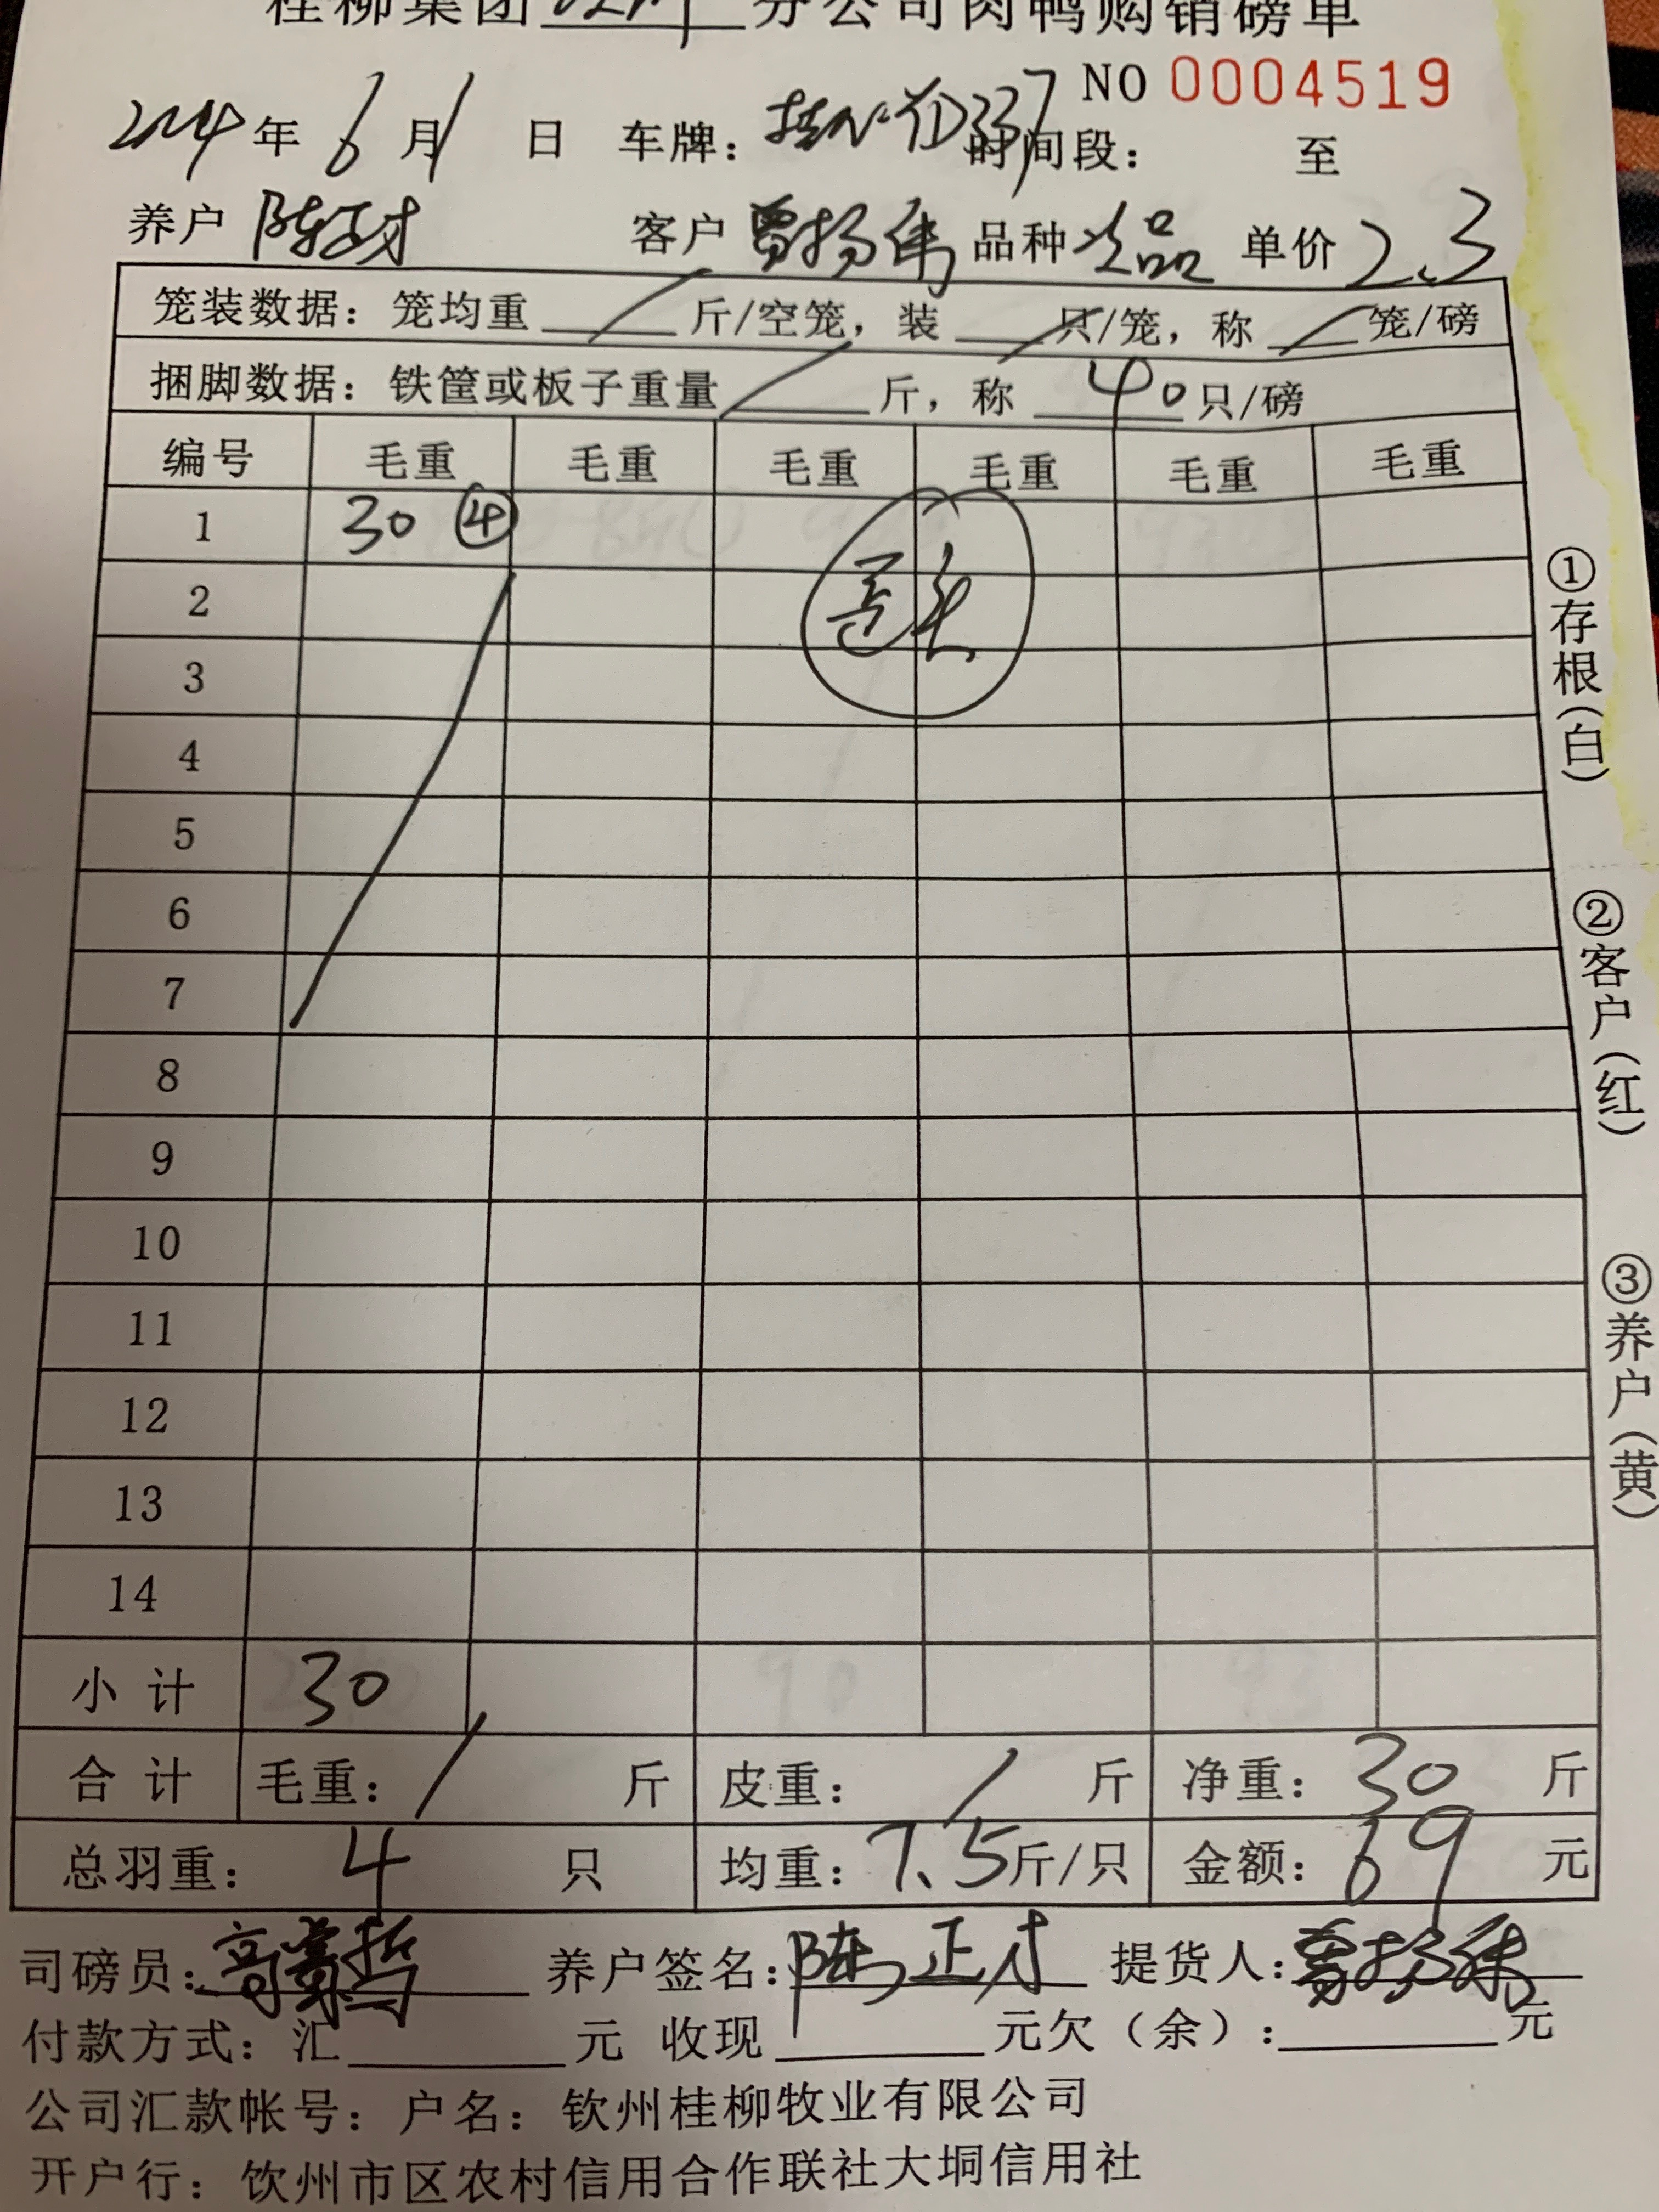 桂柳集团 分公司肉鸭购销磅单
NO 0004519
2024年 6 月 1 日 车牌： 时间段： 至
养户 陈正才 客户 曾扬 品种 次品 单价 2.3
笼装数据：笼均重 / 斤/空笼，装 / 只/笼，称 / 笼/磅
捆脚数据：铁筐或板子重量 / 斤，称 40 只/磅
编号 毛重 毛重 毛重 毛重 毛重 毛重
1 30 ④
2
3
4
5
6
7
8
9
10
11
12
13
14
小计 30
合计 毛重： / 斤 皮重： / 斤 净重：30 斤
总羽重： 4 只 均重：7.5斤/只 金额：69 元
司磅员： 养户签名：陈正才 提货人：曾扬
付款方式：汇 元 收现 元欠（余）： 元
公司汇款帐号：户名：钦州桂柳牧业有限公司
开户行：钦州市区农村信用合作联社大垌信用社
①存根（白）
②客户（红）
③养户（黄）